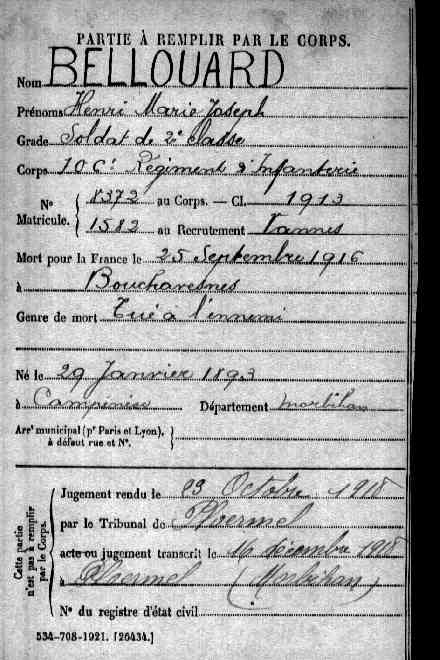 PARTIE À REMPLIR PAR LE CORPS.
Nom BELLOUARD
Prénoms Henri Marie Joseph
Grade Soldat de 2e classe
Corps 106e Régiment d'Infanterie
N° Matricule. 8372 au Corps. — Cl. 1913
1582 au Recrutement Vannes
Mort pour la France le 25 Septembre 1916
à Bouchavesnes
Genre de mort Tué à l'ennemi
Né le 29 Janvier 1893
à Campénéac Département Morbihan
Arrt municipal (pr Paris et Lyon),
à défaut rue et N°.
Cette partie n'est pas à remplir par le Corps.
Jugement rendu le 23 Octobre
par le Tribunal de Ploermel
acte ou jugement transcrit le 16 décembre
à Ploermel (Morbihan)
N° du registre d'état civil
534-708-1921. [26434.]